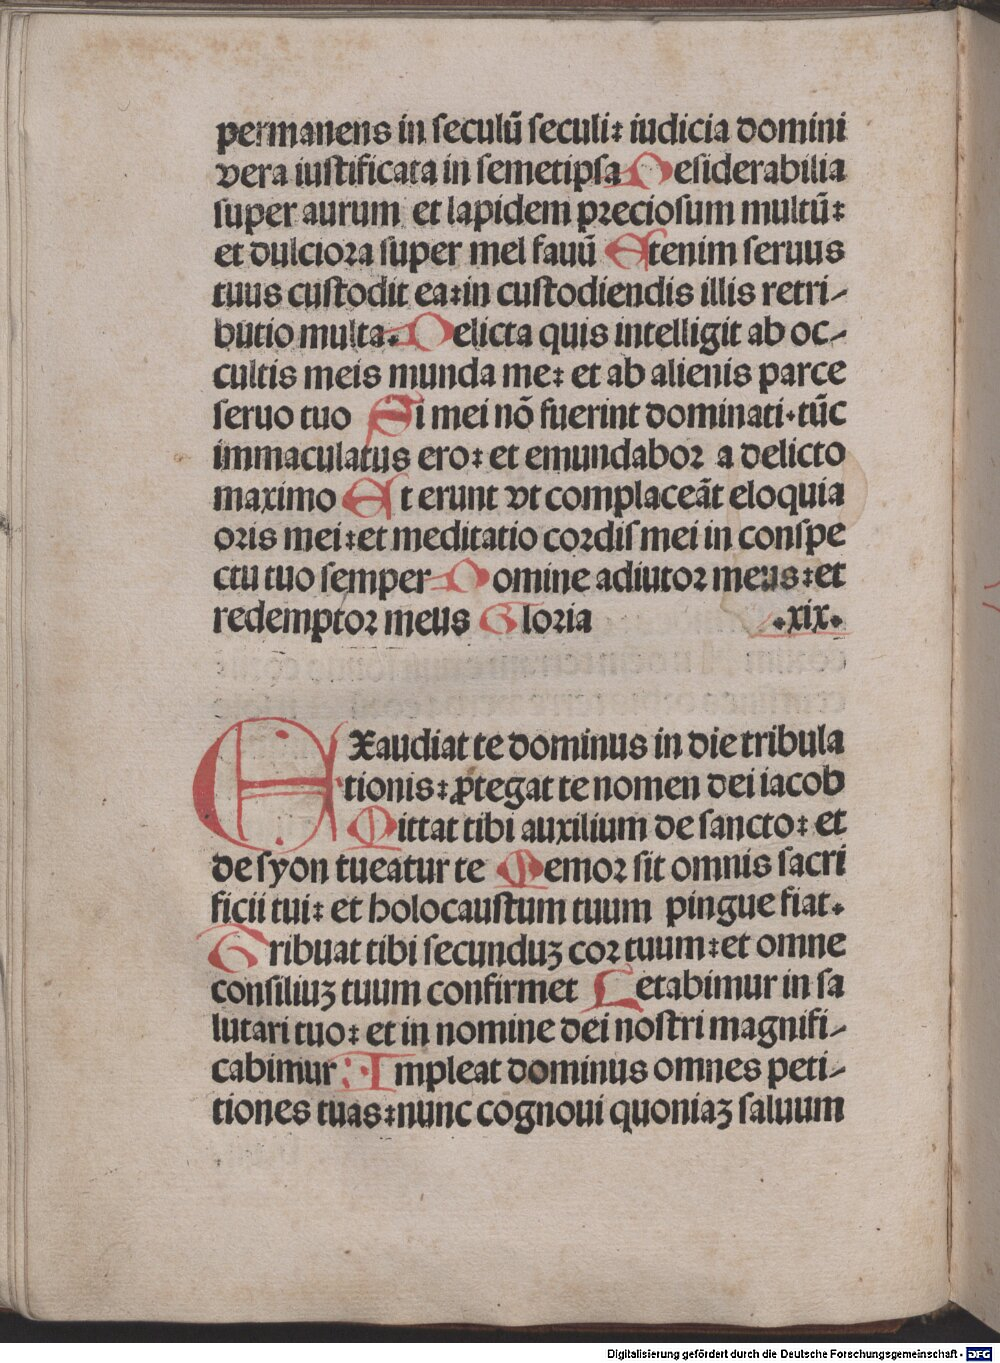 permanens in seculū seculi: iudicia domini
vera iustificata in semetipsa Desiderabilia
super aurum et lapidem preciosum multū:
et dulciora super mel fauū Etenim seruus
tuus custodit ea: in custodiendis illis retri-
butio multa. Delicta quis intelligit ab oc-
cultis meis munda me: et ab alienis parce
seruo tuo Si mei nō fuerint dominati. tūc
immaculatus ero: et emundabor a delicto
maximo Et erunt vt complaceāt eloquia
oris mei: et meditatio cordis mei in conspe
ctu tuo semper Domine adiutor meus: et
redemptor meus Gloria .xix.
EXaudiat te dominus in die tribula
tionis: ꝓtegat te nomen dei iacob
Mittat tibi auxilium de sancto: et
de syon tueatur te Memor sit omnis sacri
ficii tui: et holocaustum tuum pingue fiat.
Tribuat tibi secunduꝫ cor tuum: et omne
consiliuꝫ tuum confirmet Letabimur in sa
lutari tuo: et in nomine dei nostri magnifi-
cabimur Impleat dominus omnes peti-
tiones tuas: nunc cognoui quoniaꝫ saluum
Digitalisierung gefördert durch die Deutsche Forschungsgemeinschaft - DFG